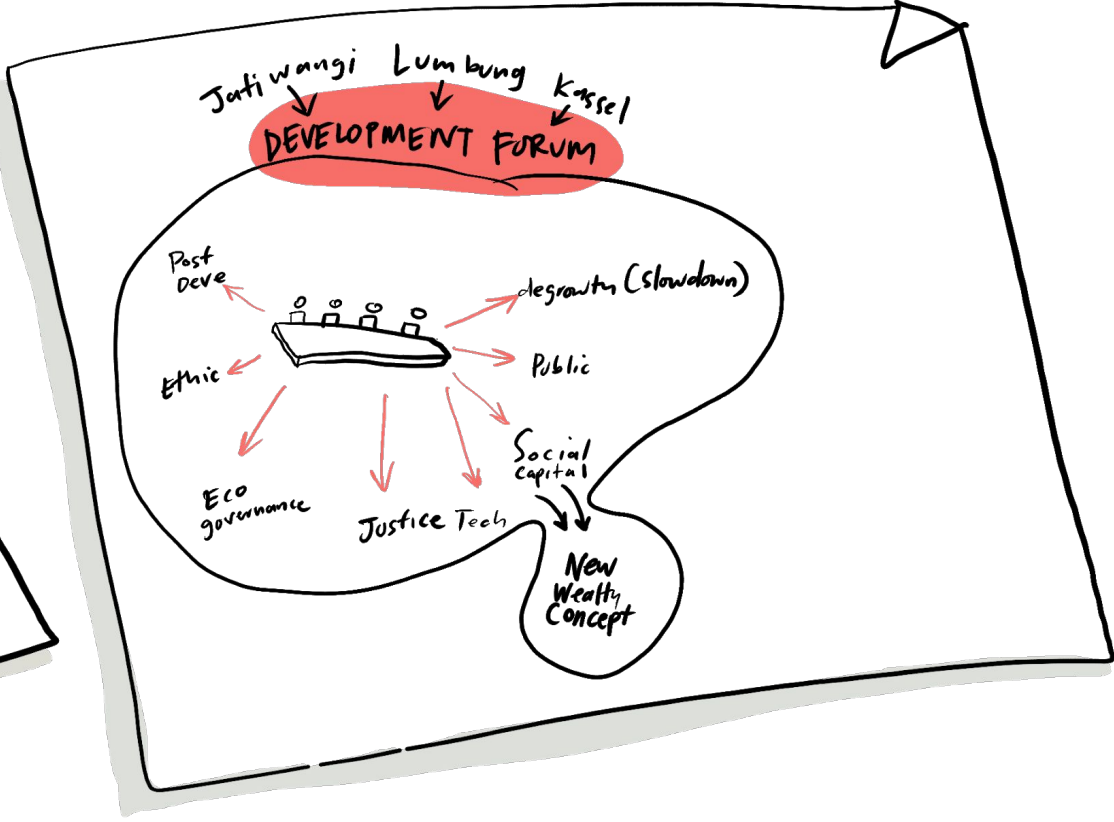 Jatiwangi Lumbung Kassel
DEVELOPMENT FORUM
Post
Deve
degrowth (slowdown)
Ethic
Public
Social
capital
Eco
governance
Justice Tech
New
Wealth
Concept